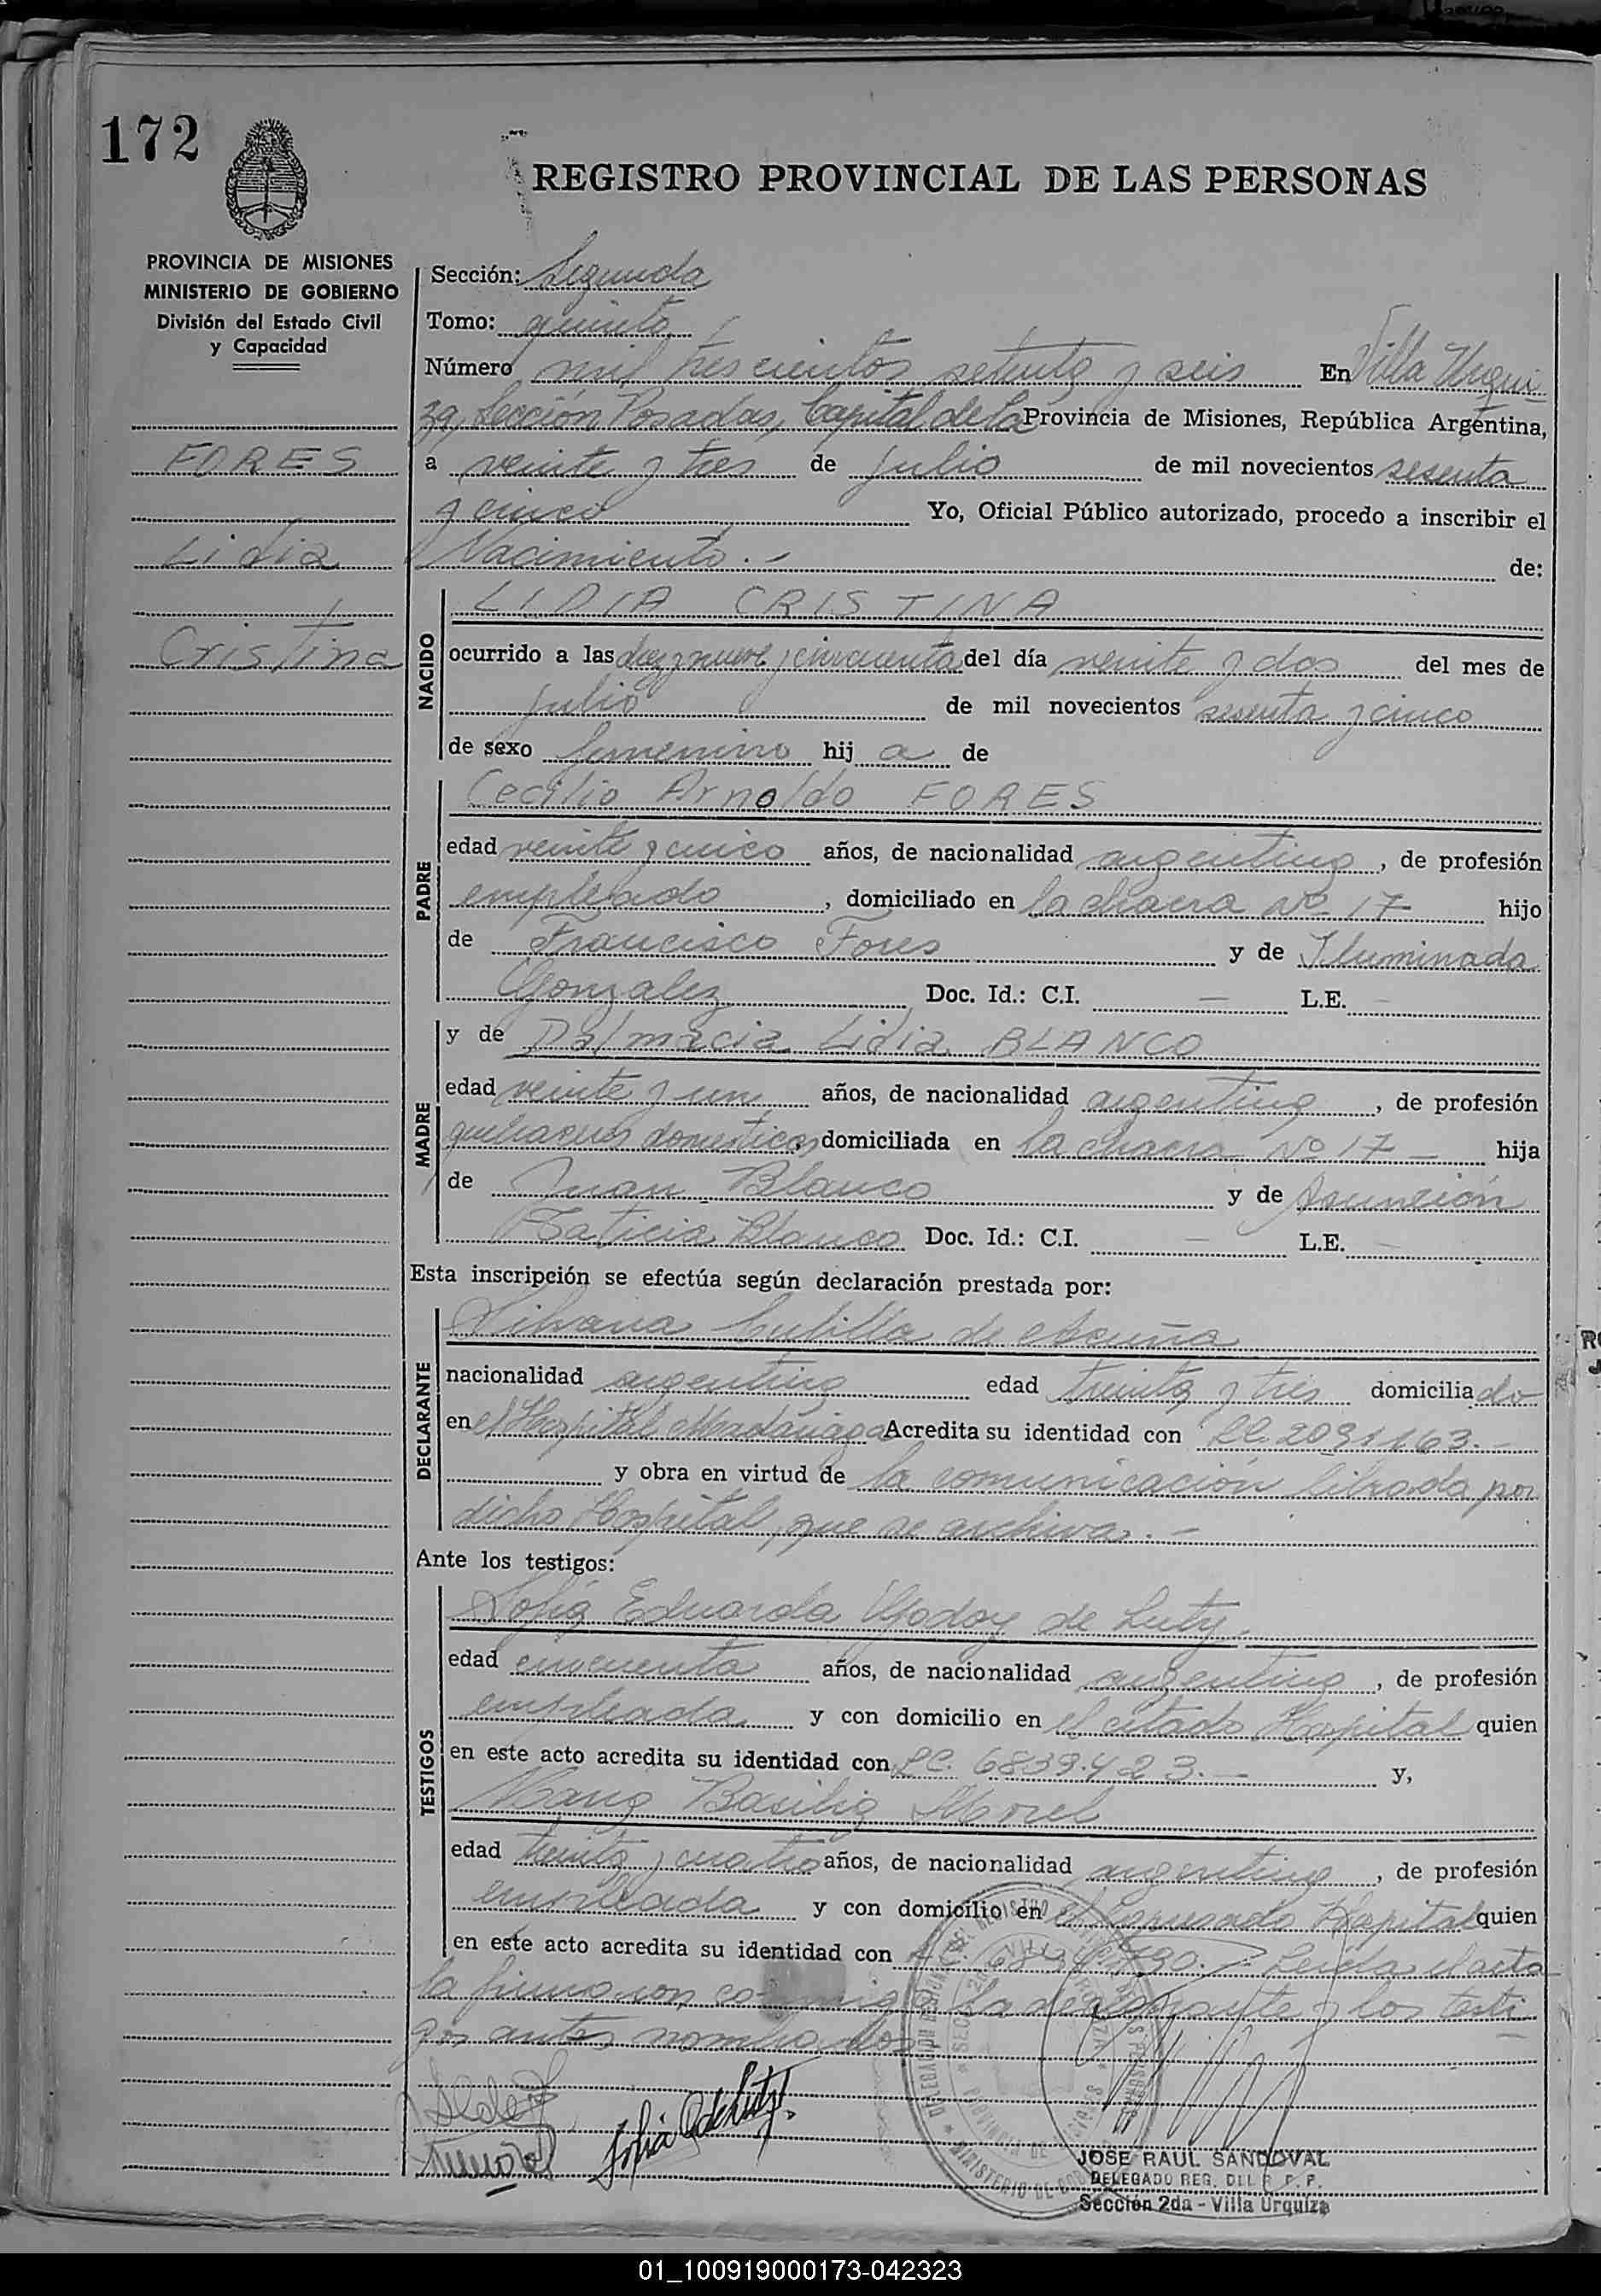 172
REGISTRO PROVINCIAL DE LAS PERSONAS
PROVINCIA DE MISIONES
MINISTERIO DE GOBIERNO
División del Estado Civil
y Capacidad
FORES
Lidia
Cristina
Sección: Segunda
Tomo: quinto
Número mil trescientos setenta y seis En Villa Urqui
za, Sección Posadas, Capital de la Provincia de Misiones, República Argentina,
a veinte y tres de julio de mil novecientos sesenta
y cinco Yo, Oficial Público autorizado, procedo a inscribir el
Nacimiento.- de:
NACIDO
LIDIA CRISTINA
ocurrido a las diez y nueve y cincuenta del día veinte y dos del mes de
julio de mil novecientos sesenta y cinco
de sexo femenino hij a de
PADRE
Cecilio Arnoldo FORES
edad veinte y cinco años, de nacionalidad argentino, de profesión
empleado, domiciliado en la chacra Nº 17 hijo
de Francisco Fores y de Iluminada
Gonzalez Doc. Id.: C.I. — L.E. —
MADRE
y de Dalmacia Lidia BLANCO
edad veinte y un años, de nacionalidad argentina, de profesión
quehaceres domesticos, domiciliada en la chacra Nº 17 - hija
de Juan Blanco y de Asunción
Blanco Doc. Id.: C.I. — L.E. —
Esta inscripción se efectúa según declaración prestada por:
DECLARANTE
de Acuña
nacionalidad argentina edad treinta y tres domiciliado
en el Hospital Madariaga Acredita su identidad con 2031163.-
y obra en virtud de la comunicación librada por
dicho Hospital, que se archiva.-
Ante los testigos:
TESTIGOS
Sofia Eduarda Godoy de Luty.
edad cincuenta años, de nacionalidad argentina, de profesión
empleada y con domicilio en el citado Hospital quien
en este acto acredita su identidad con 6839.423.- y,
Basilia Morel
edad treinta y cuatro años, de nacionalidad argentina, de profesión
empleada y con domicilio en el expresado Hospital quien
en este acto acredita su identidad con Leída el acta
la firmaron conmigo la declarante y los testi
gos antes nombrados
JOSE RAUL SANDOVAL
DELEGADO REG. DEL R. P. P.
Sección 2da - Villa Urquiza
01_100919000173-042323